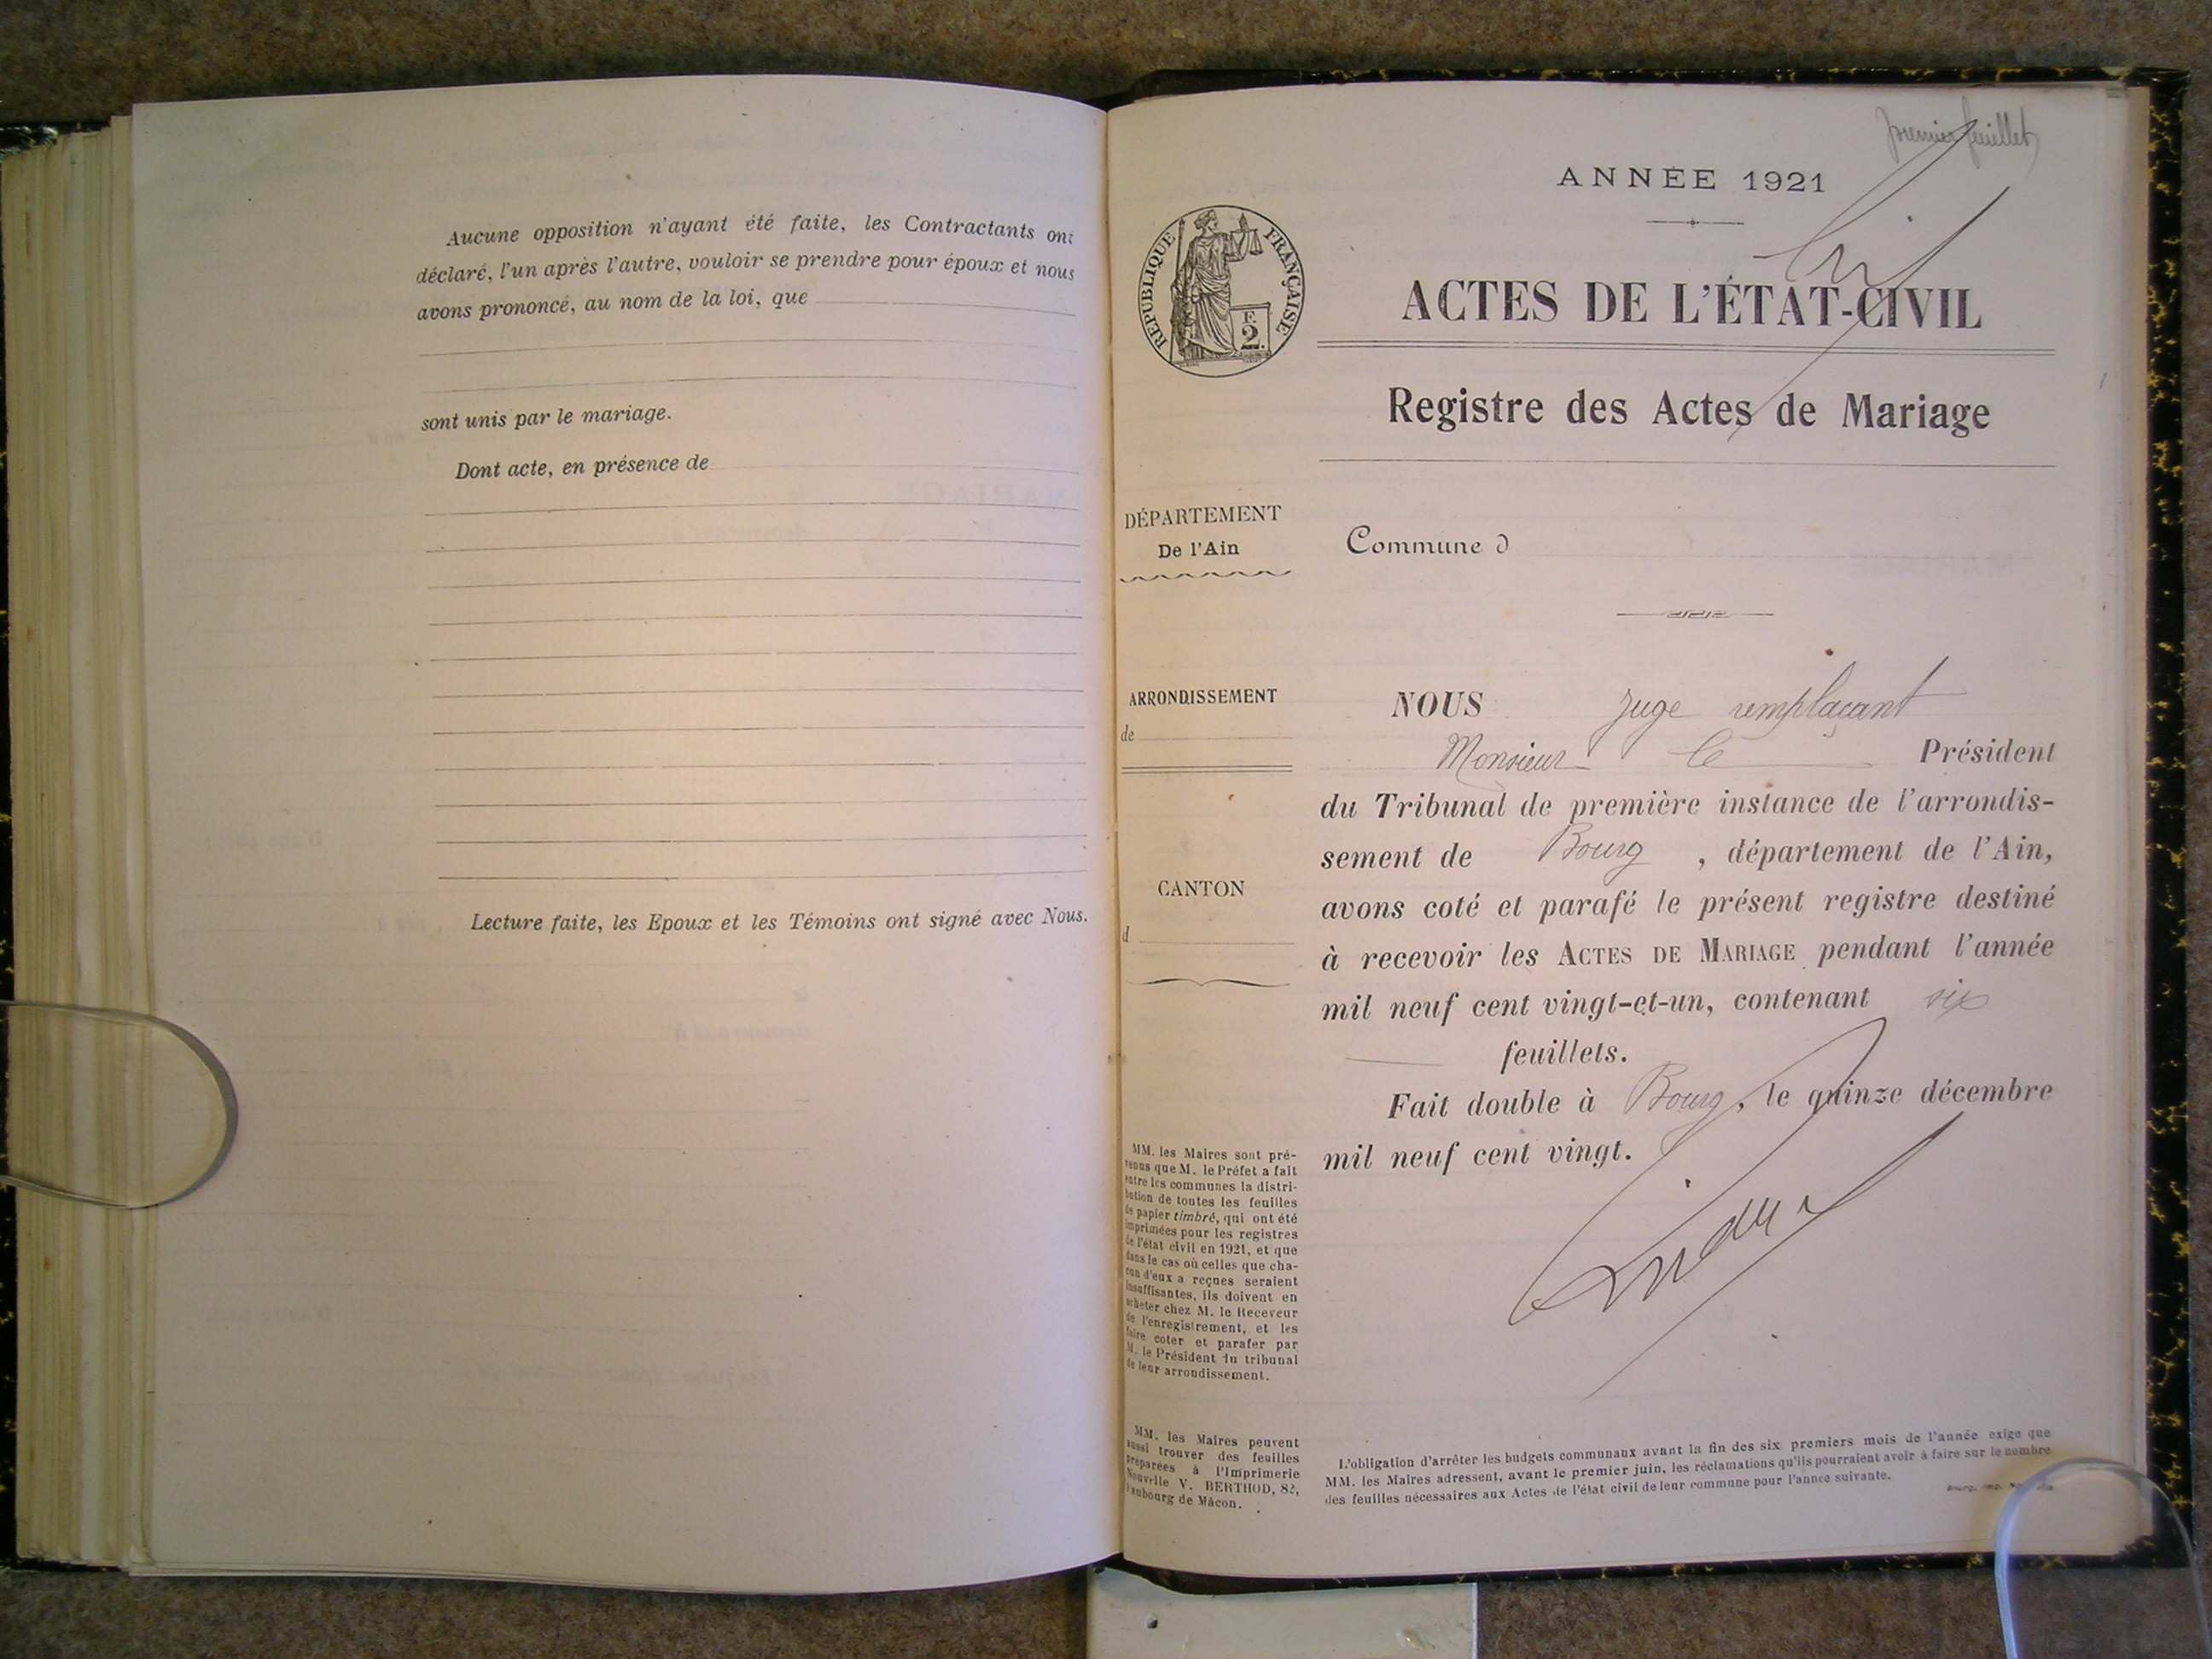 Aucune opposition n'ayant été faite, les Contractants ont
déclaré, l'un après l'autre, vouloir se prendre pour époux et nous
avons prononcé, au nom de la loi, que
sont unis par le mariage.
Dont acte, en présence de
Lecture faite, les Epoux et les Témoins ont signé avec Nous.
premier feuillet
ANNÉE 1921
RÉPUBLIQUE FRANÇAISE
F.
2
ACTES DE L'ÉTAT-CIVIL
Registre des Actes de Mariage
DÉPARTEMENT
De l'Ain
Commune d
ARRONDISSEMENT
de
CANTON
d
NOUS Juge remplaçant
Monsieur le Président
du Tribunal de première instance de l'arrondis-
sement de Bourg, département de l'Ain,
avons coté et parafé le présent registre destiné
à recevoir les ACTES DE MARIAGE pendant l'année
mil neuf cent vingt-et-un, contenant six
feuillets.
Fait double à Bourg, le quinze décembre
mil neuf cent vingt.
MM. les Maires sont pré-
venus que M. le Préfet a fait
entre les communes la distri-
bution de toutes les feuilles
de papier timbré, qui ont été
imprimées pour les registres
de l'état civil en 1921, et que
dans le cas où celles que cha-
cun d'eux a reçues seraient
insuffisantes, ils doivent en
acheter chez M. le Receveur
de l'enregistrement, et les
faire coter et parafer par
M. le Président du tribunal
de leur arrondissement.
MM. les Maires peuvent
aussi trouver des feuilles
préparées à l'Imprimerie
Nouvelle V. BERTHOD, 82,
Faubourg de Mâcon.
L'obligation d'arrêter les budgets communaux avant la fin des six premiers mois de l'année exige que
MM. les Maires adressent, avant le premier juin, les réclamations qu'ils pourraient avoir à faire sur le nombre
des feuilles nécessaires aux Actes de l'état civil de leur commune pour l'année suivante.